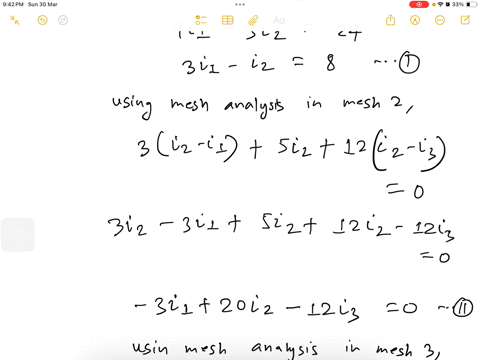 9:42 PM Sun 30 Mar
33%
Aa
3i1 - i2 = 8 ---- ①
using mesh analysis in mesh 2,
3(i2-i1) + 5i2 + 12(i2-i3)
= 0
3i2 - 3i1 + 5i2 + 12i2 - 12i3
= 0
-3i1 + 20i2 - 12i3 = 0 --- ⑪
usin mesh analysis in mesh 3,